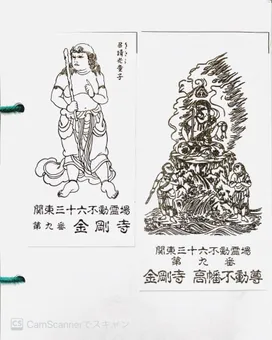 呂請光童子
関東三十六不動霊場
第九番 金剛寺
関東三十六不動霊場
第九番
金剛寺 高幡不動尊
CS CamScannerでスキャン